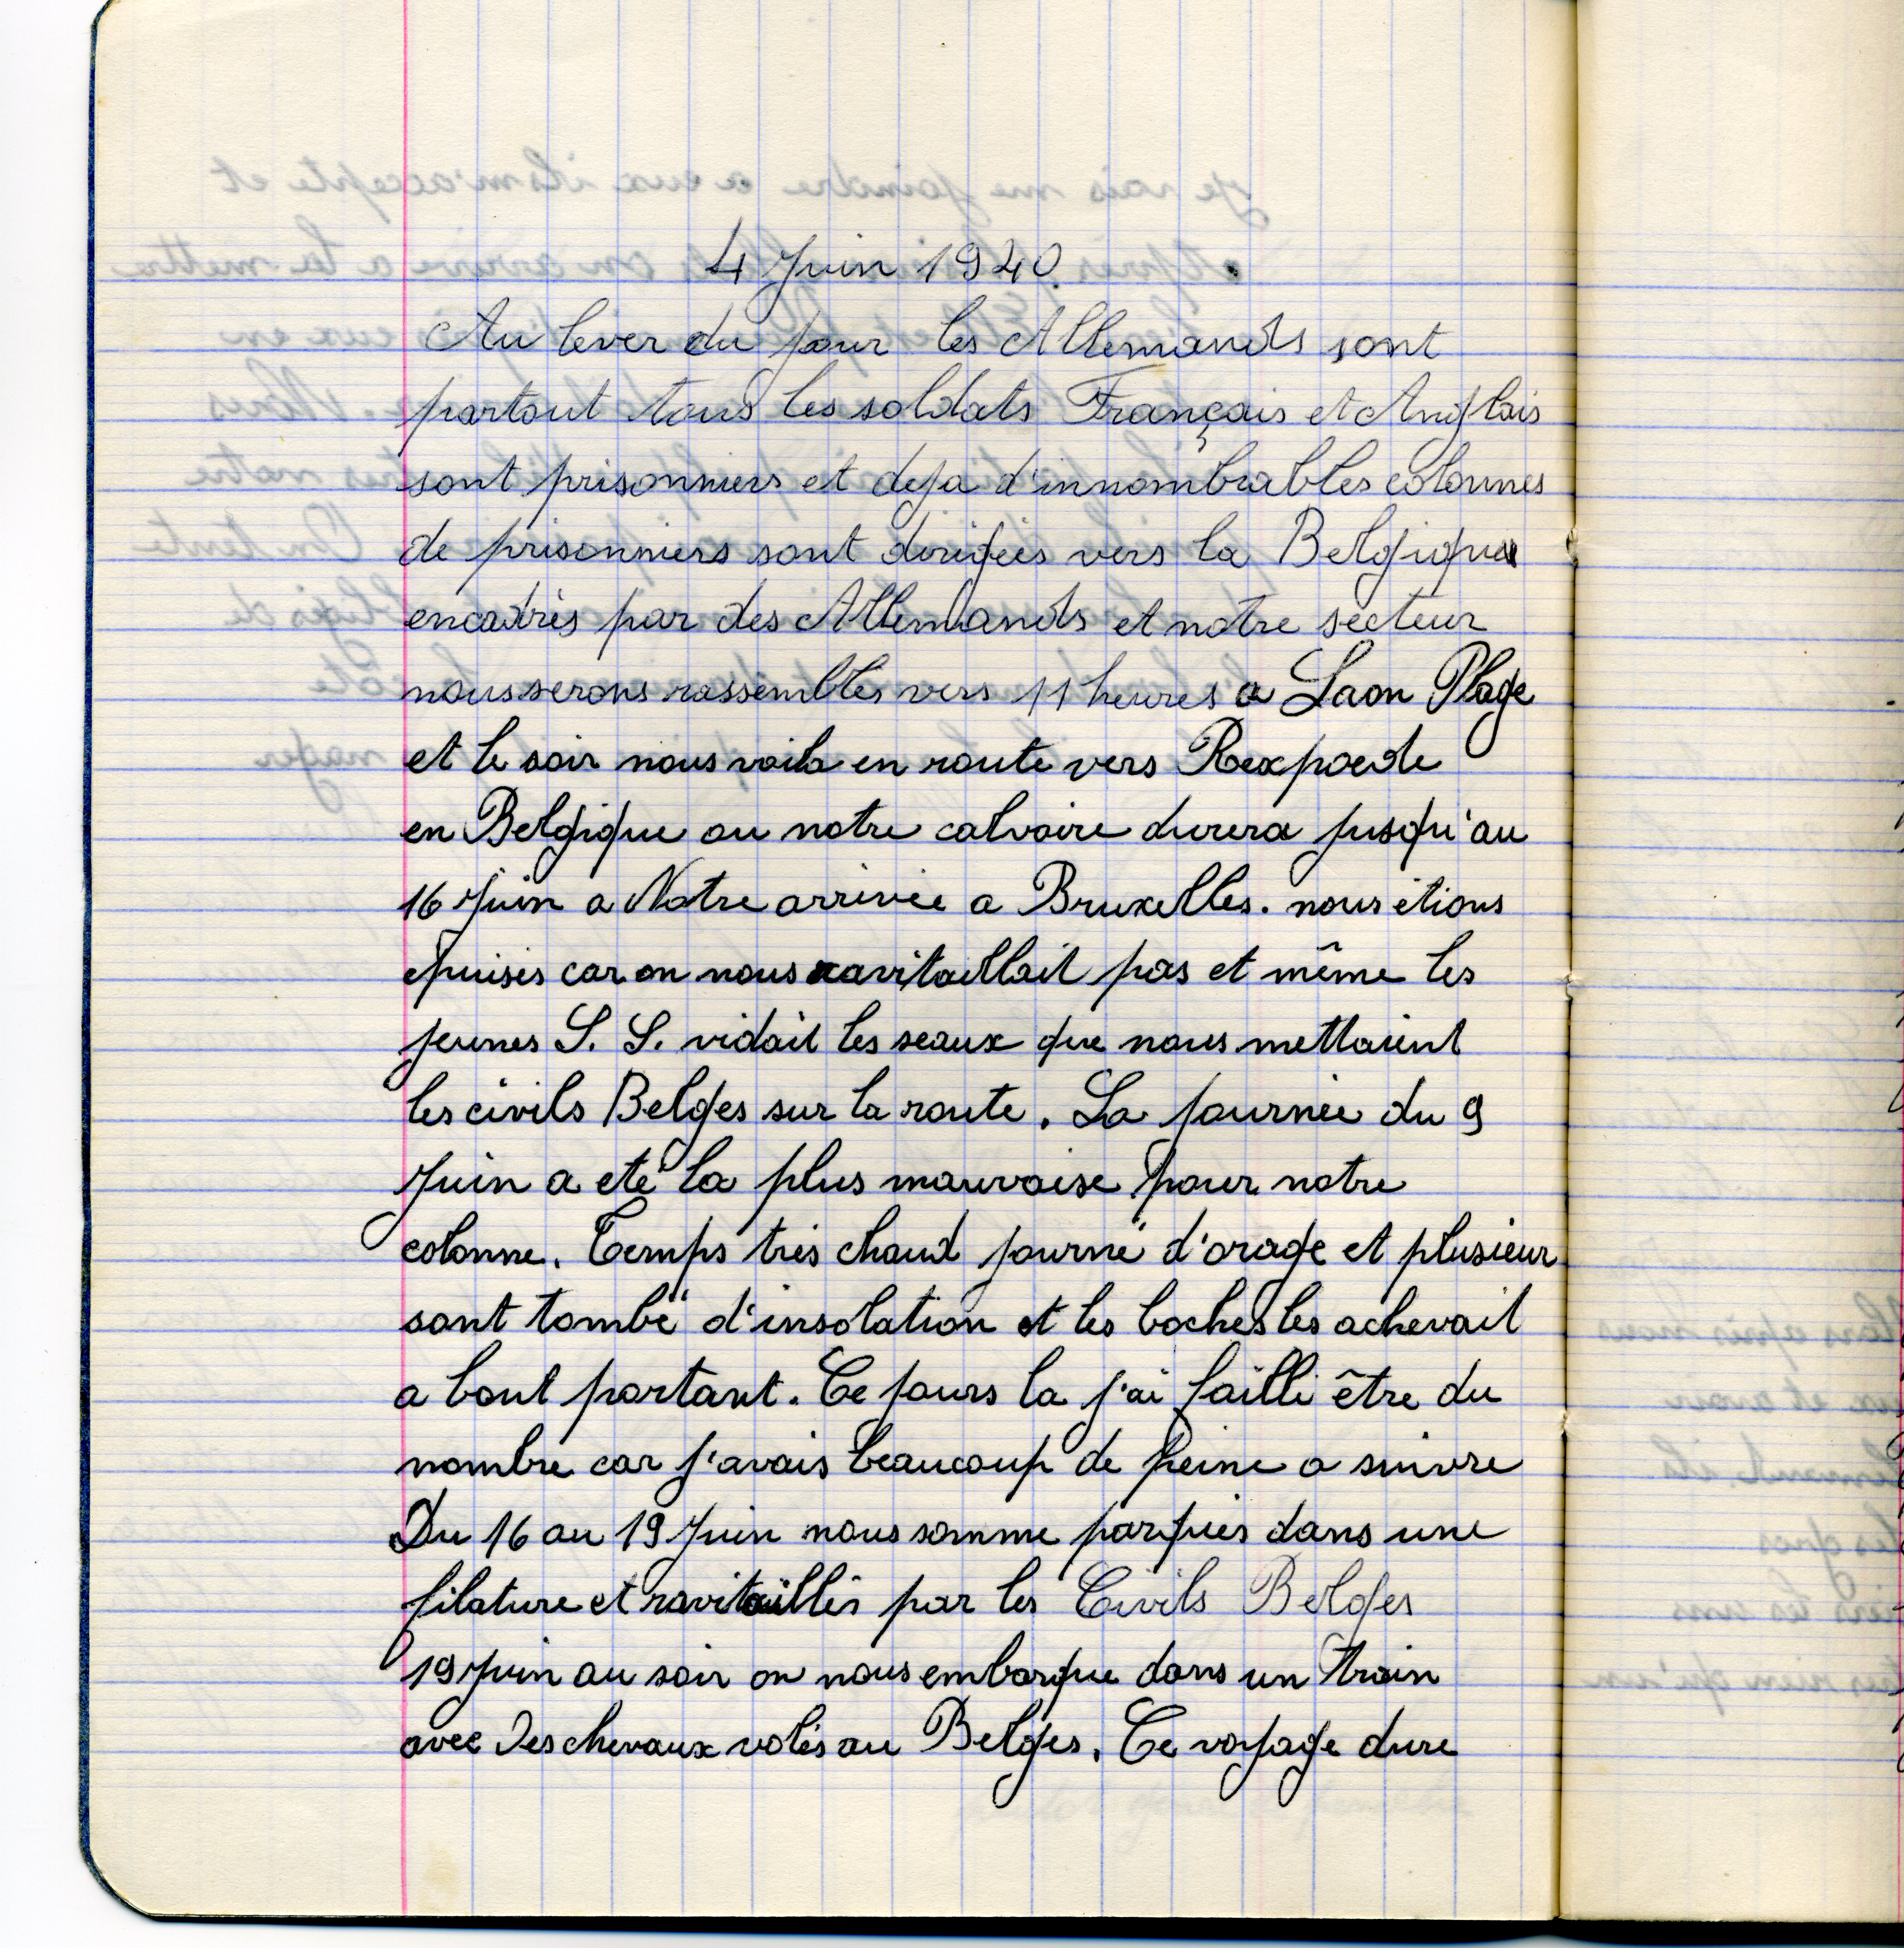 4 Juin 1940.
Au lever du jour les Allemands sont
partout tous les soldats Français et Anglais
sont prisonniers et deja d'innombrables colonnes
de prisonniers sont dirigées vers la Belgique
encadrés par des Allemands et notre secteur
nous serons rassemblés vers 11 heures a Laon Plage
et le soir nous voila en route vers Rexpoede
en Belgique ou notre calvaire durera jusqu'au
16 Juin a Notre arrivée a Bruxelles. nous étions
épuisés car on nous ravitaillait pas et même les
jeunes S. S. vidait les seaux que nous mettaient
les civils Belges sur la route. La journée du 9
Juin a eté la plus mauvaise pour notre
colonne. Temps trés chaud journé d'orage et plusieur
sont tombé d'insolation et les boches les achevait
a bout portant. Ce jours la j'ai failli être du
nombre car j'avais beaucoup de peine a suivre
Du 16 au 19 Juin nous somme parqués dans une
filature et ravitaillés par les Civils Belges
19 Juin au soir on nous embarque dans un train
avec des chevaux volés au Belges. Ce voyage dure